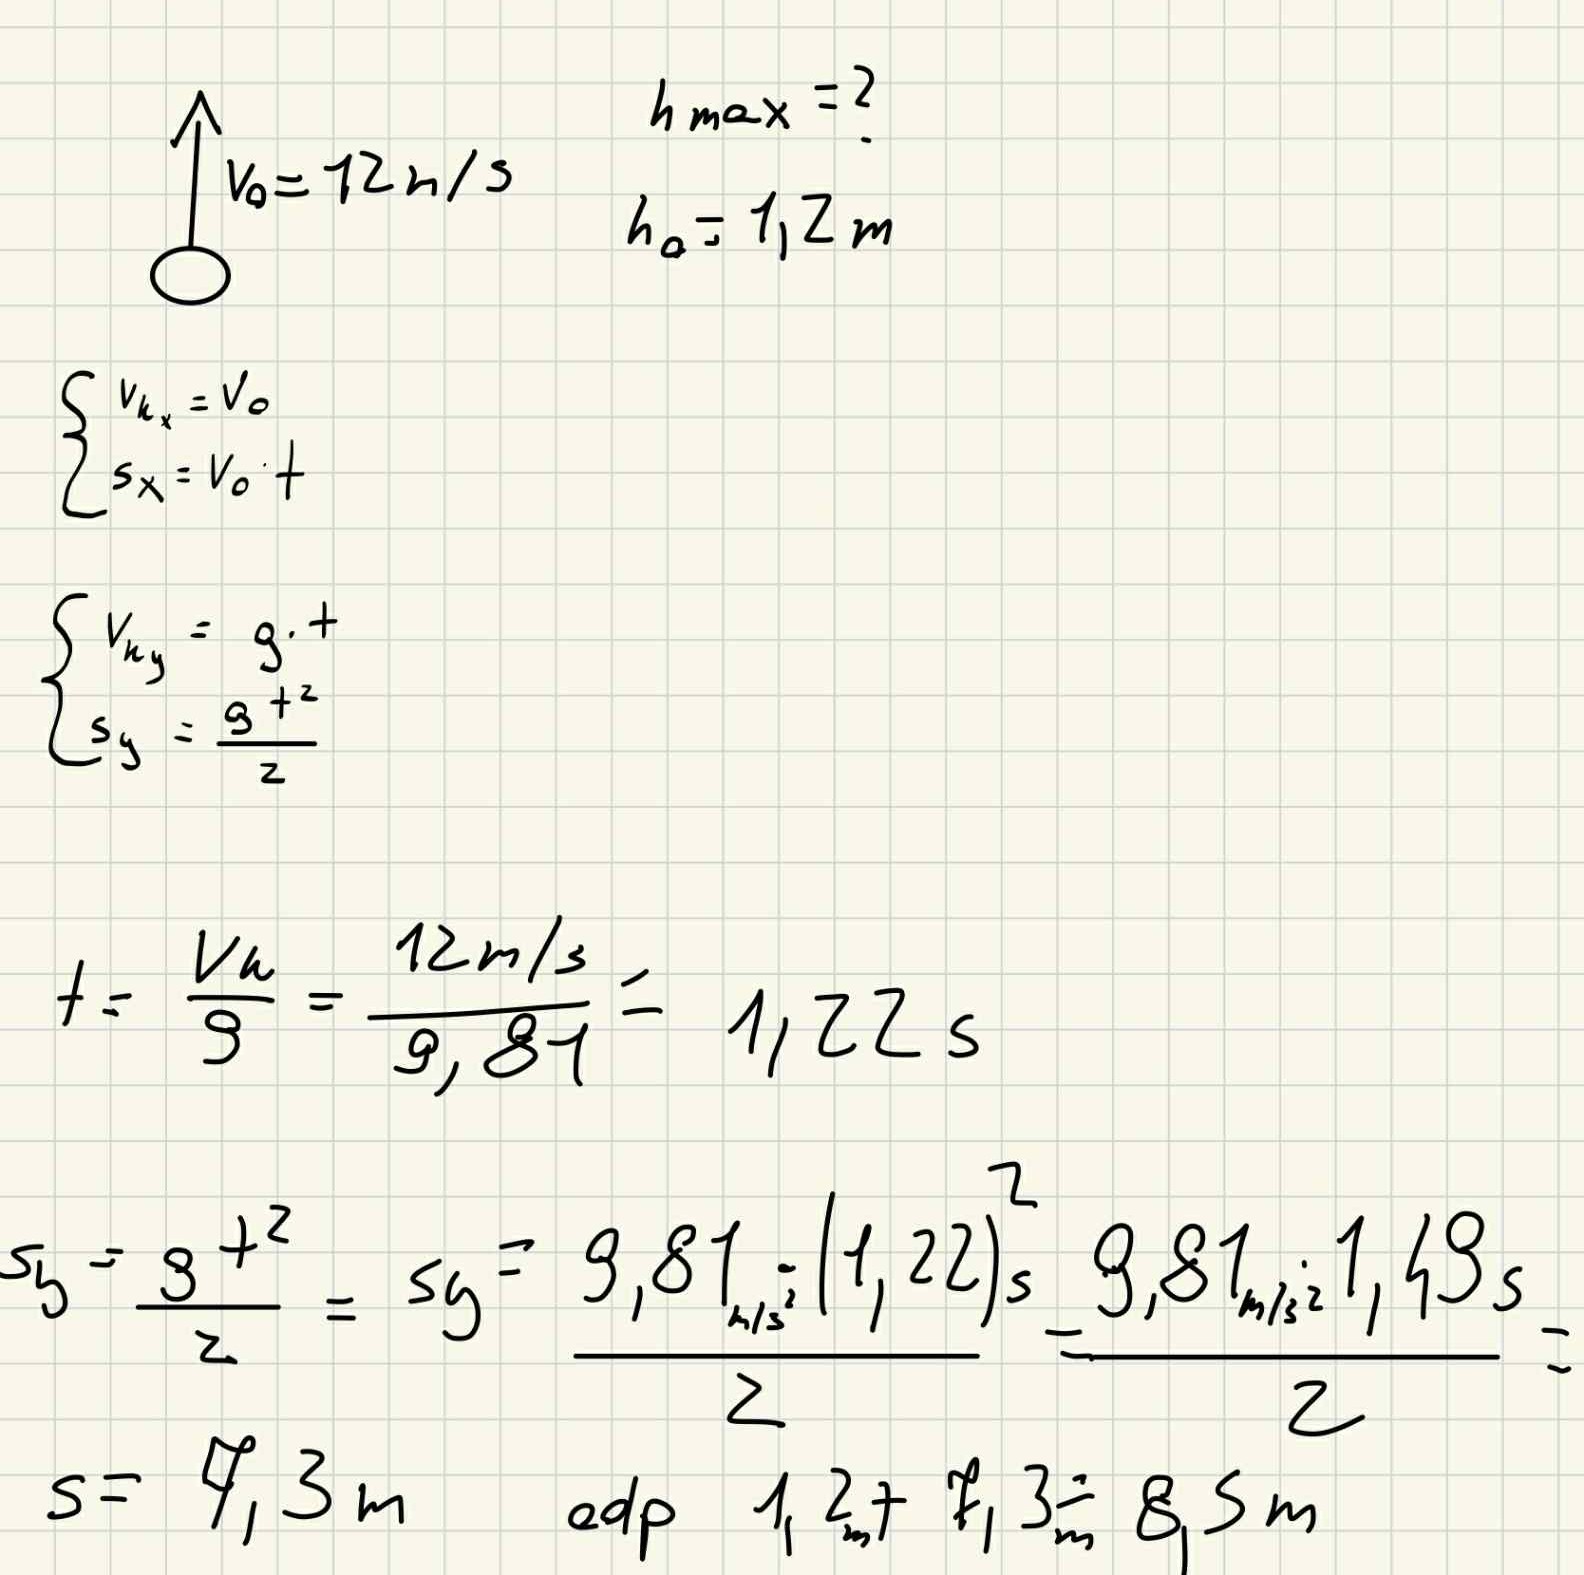 h max = ?
V₀ = 12 m/s
h₀ = 1,2 m
{ Vₖₓ = V₀
sₓ = V₀ · t
{ Vₖᵧ = g · t
sᵧ = gt²/2
t = Vₖ/g = 12 m/s / 9,81 = 1,22 s
sy = gt²/2 = sy = 9,81 m/s² · (1,22)² s / 2 = 9,81 m/s² · 1,49 s / 2 =
s = 7,3 m odp 1,2 m + 7,3 m = 8,5 m